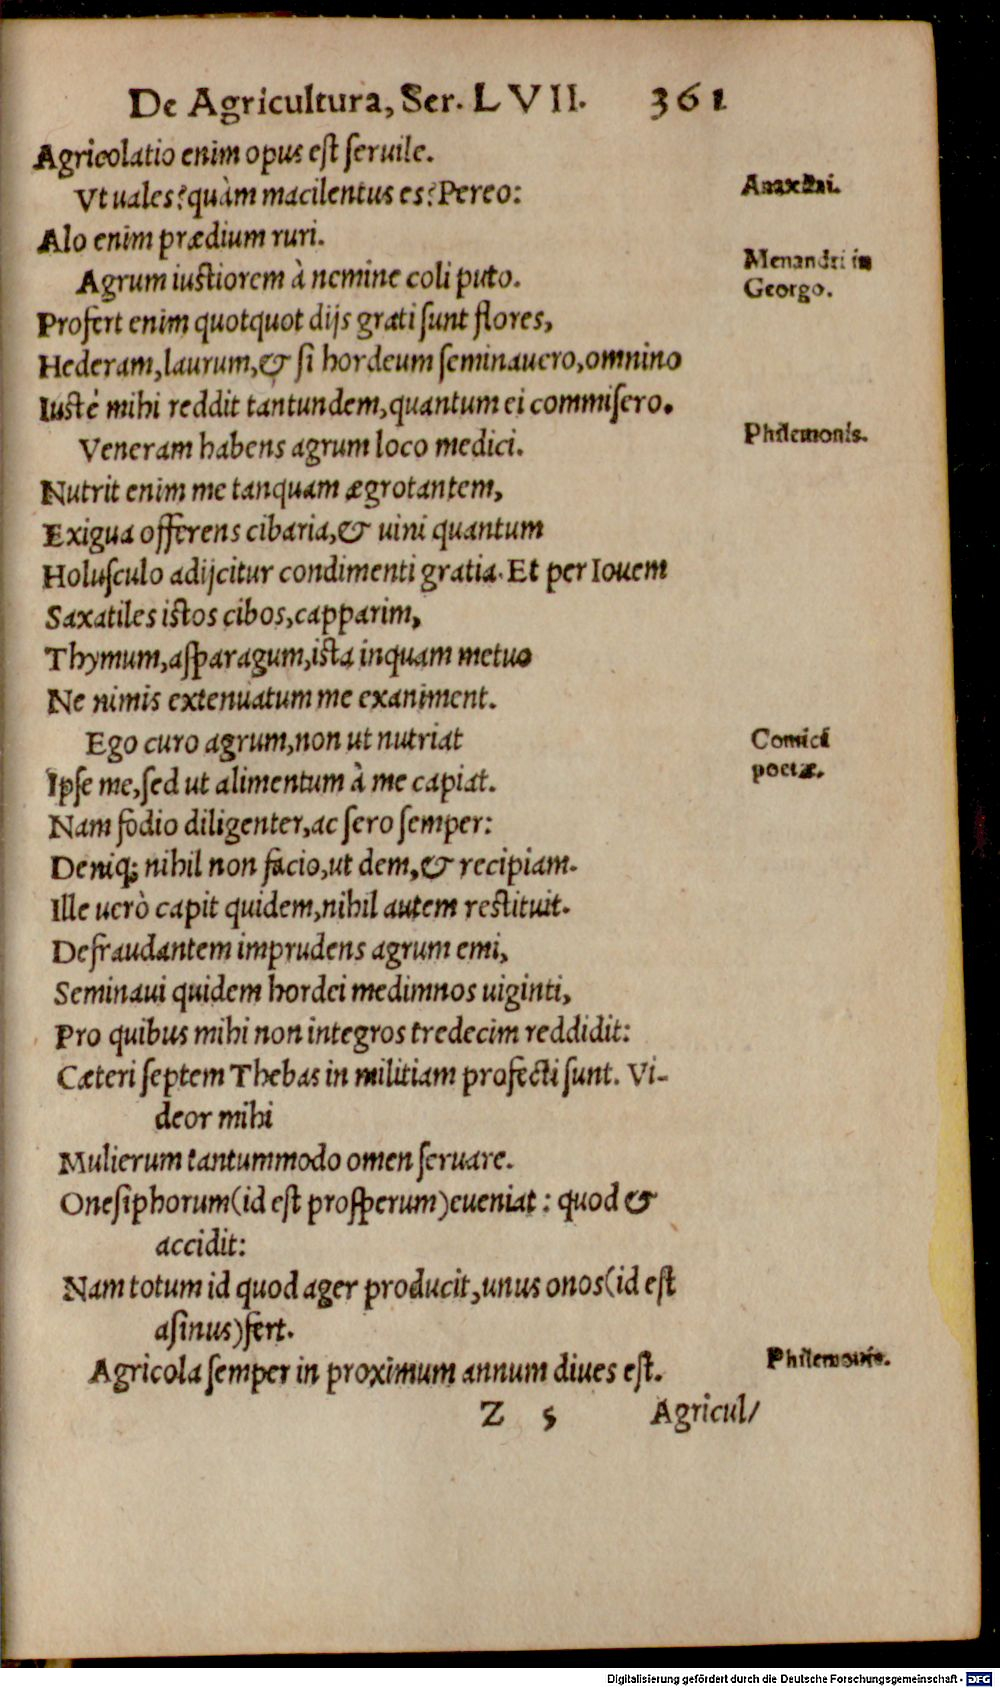 De Agricultura, Ser. LVII. 361
Agricolatio enim opus est seruile.
Vt uales? quàm macilentus es? Pereo:
Alo enim prædium ruri.
Agrum iustiorem à nemine coli puto.
Menandri in
Georgo.
Profert enim quotquot dijs grati sunt flores,
Hederam, laurum, & si hordeum seminauero, omnino
Iustè mihi reddit tantundem, quantum ei commisero.
Veneram habens agrum loco medici.
Philemonis.
Nutrit enim me tanquam ægrotantem,
Exigua offerens cibaria, & uini quantum
Holusculo adijcitur condimenti gratia. Et per Iouem
Saxatiles istos cibos, capparim,
Thymum, asparagum, ista inquam metuo
Ne nimis extenuatum me exaniment.
Ego curo agrum, non ut nutriat
Comici
poetæ.
Ipse me, sed ut alimentum à me capiat.
Nam fodio diligenter, ac sero semper:
Deniq; nihil non facio, ut dem, & recipiam.
Ille uerò capit quidem, nihil autem restituit.
Defraudantem imprudens agrum emi,
Seminaui quidem hordei medimnos uiginti,
Pro quibus mihi non integros tredecim reddidit:
Cæteri septem Thebas in militiam profecti sunt. Vi-
deor mihi
Mulierum tantummodo omen seruare.
Onesiphorum (id est prosperum) eueniat: quod &
accidit:
Nam totum id quod ager producit, unus onos (id est
asinus) fert.
Agricola semper in proximum annum diues est.
Philemonis.
Z 5 Agricul/
Digitalisierung gefördert durch die Deutsche Forschungsgemeinschaft - DFG